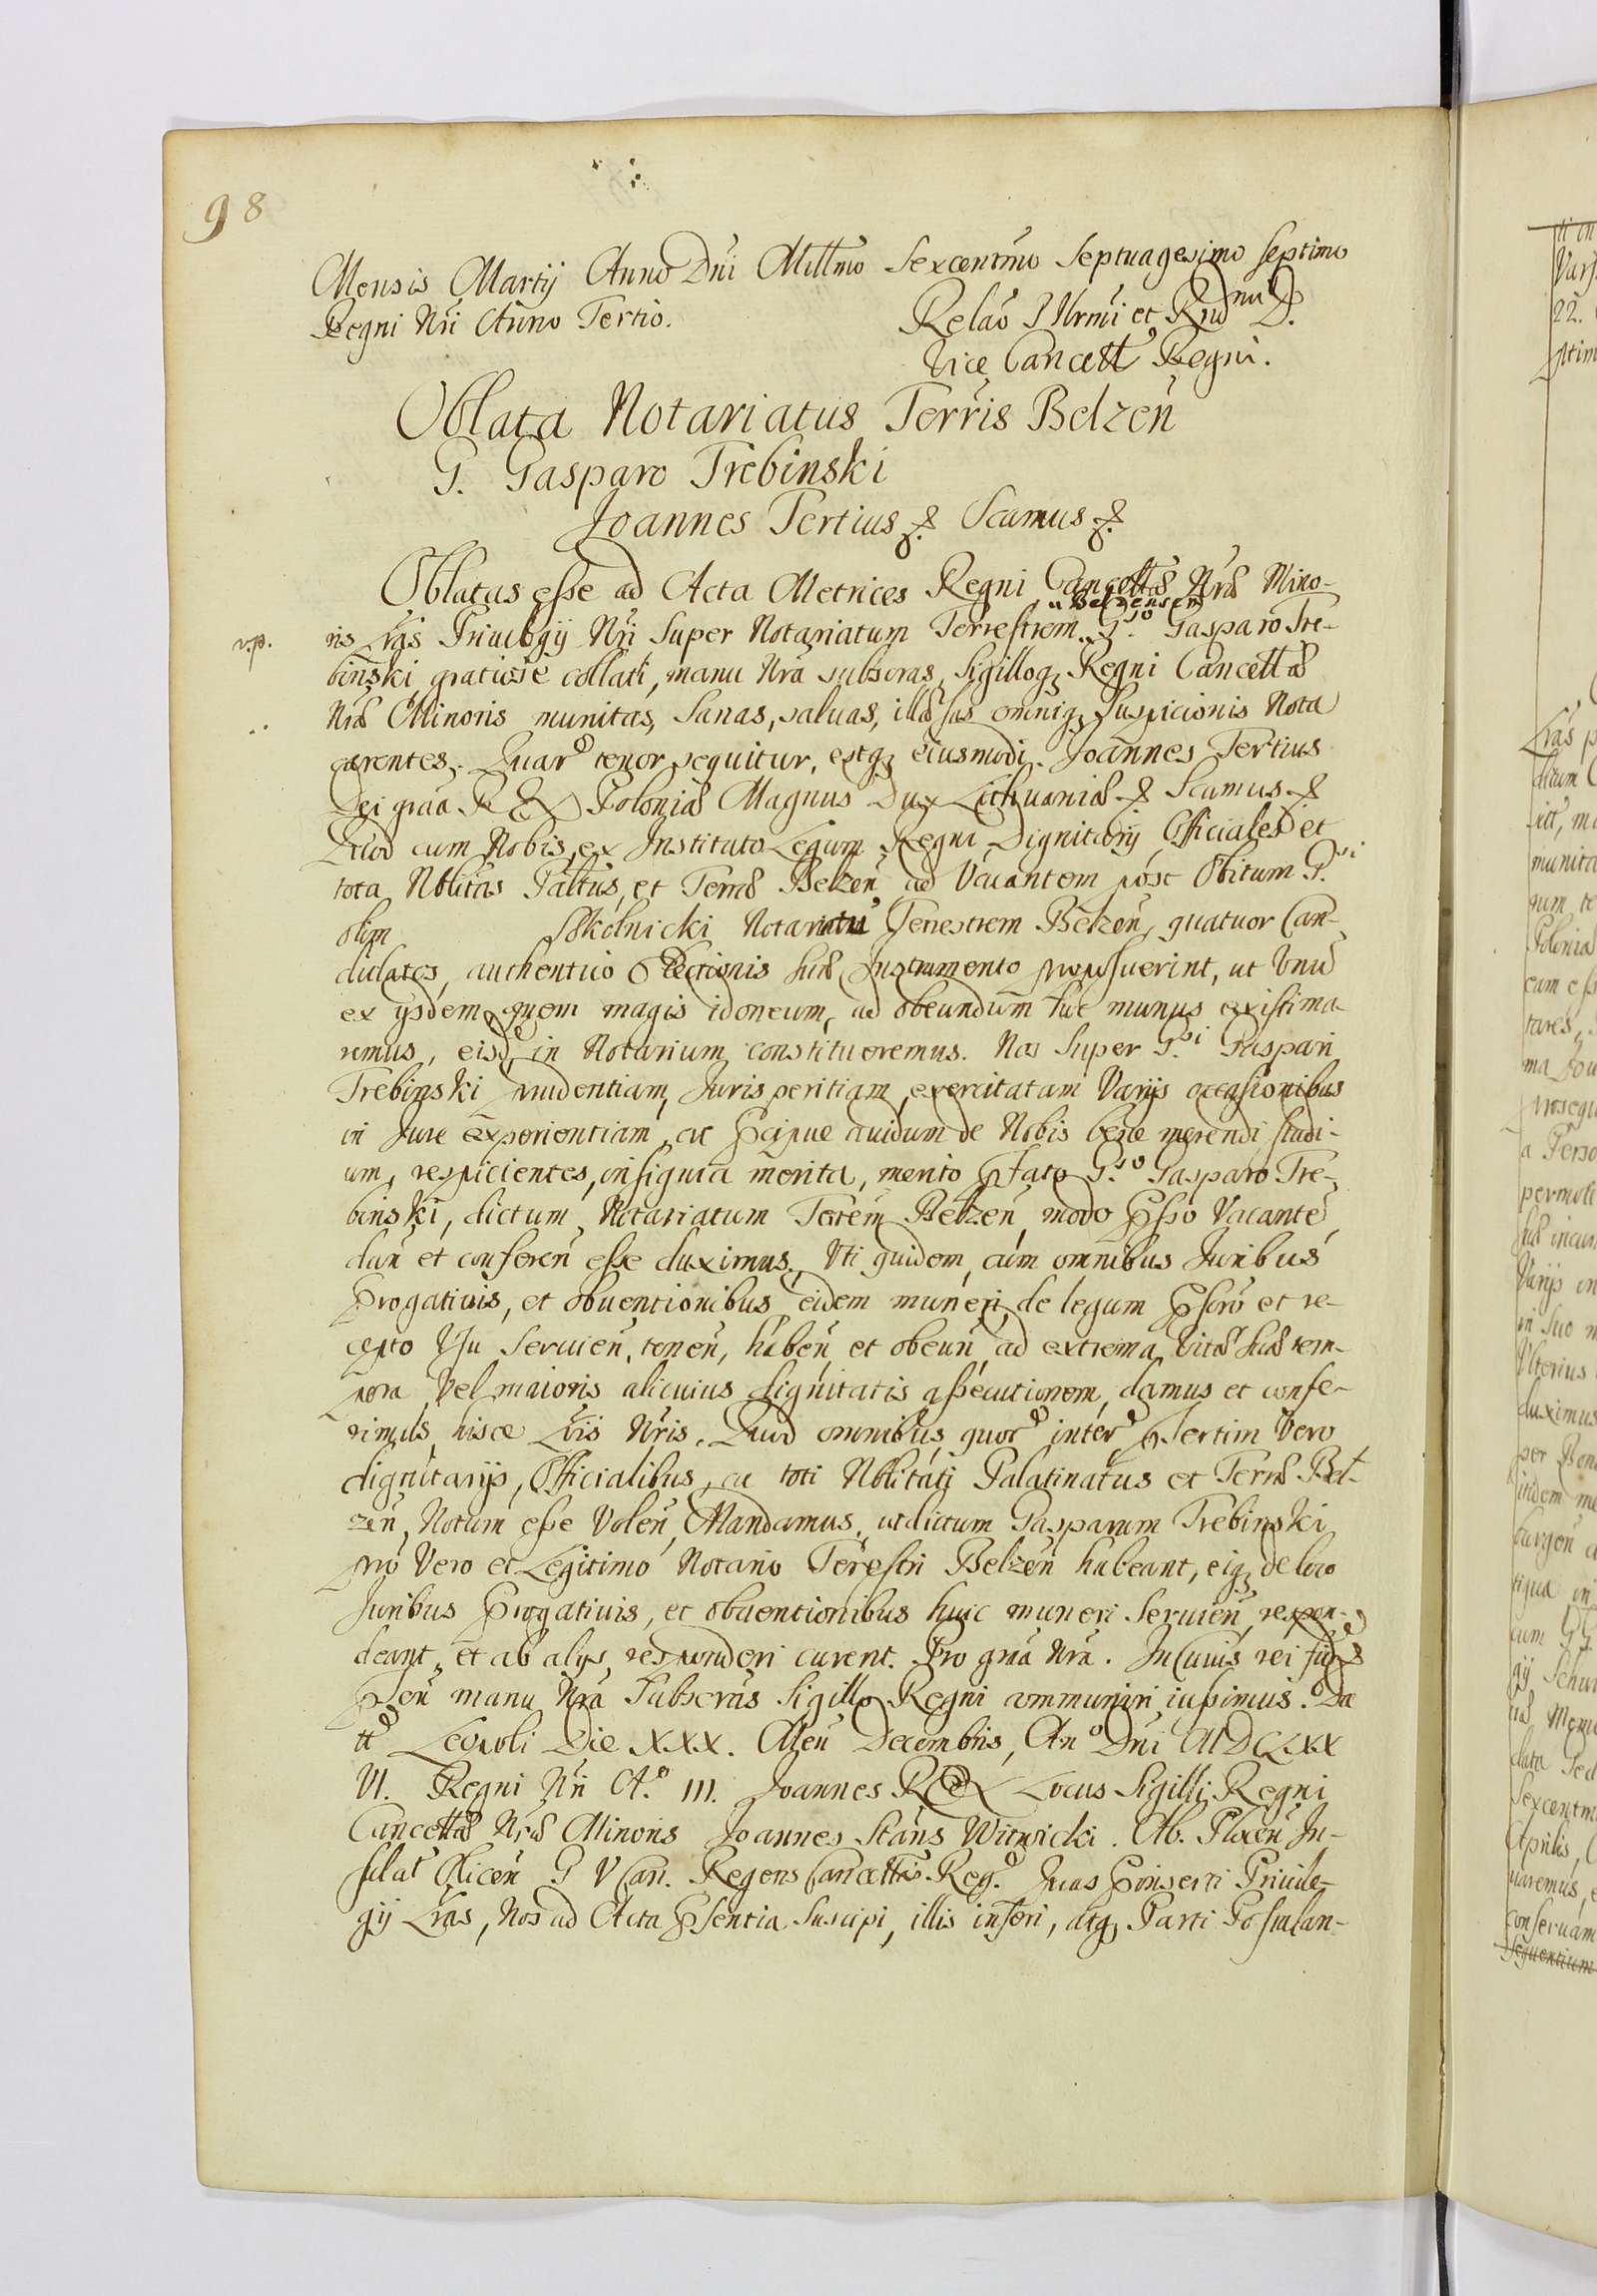 98
Mensis Martij Anno Dni Millmo Sexcentmo Septuagesimo septimo
Regni Nri Anno Tertio.
Relao Illrmi et Rndmi D.
Vice Cancell Regni.
Oblata Notariatus Terris Belzen
G. Gasparo Trebinski
Joannes Tertius &. Scamus &.
Oblatas esse ad Acta Metrices Regni Cancellae Nrae Mino-
u Belzensem
v.p.
ris Lras Priuilegij Nri super Notariatum Terrestrem Gso Gasparo Tre-
binski gratiose collati, manu Nra subscras, Sigilloq Regni Cancellae
Nrae Minoris munitas, Sanas, saluas, illaesas omniq suspicionis Nota
carentes. Quar tenor sequitur, estq eiusmodi. Joannes Tertius
Dei graa REX Poloniae Magnus Dux Lithuaniae & Scamus &
Quod cum Nobis, ex Instituto Legum Regni Dignitarij Officiales et
tota Nblitas Paltus, et Terrae Belzen ad Vacantem post Obitum Gsi
olim Skolnicki Notariatu Terrestrem Belzen, quatuor Can-
didatos, authentico Electionis suae Instrumento proposuerint, ut Vnu
ex ijsdem, quem magis idoneum, ad obeundum hoc munus existima-
remus, eisd in Notarium constitueremus. Nos super Gsi Gaspari
Trebinski prudentiam, Juris peritiam, exercitatam Varijs occasionibus
in Jure experientiam, ac pcipue auidum de Nobis bene merendi studi-
um, respicientes, insignia merita, merito pfato Gso Gasparo Tre-
binski, dictum Notariatum Terrem Belzen modo pssо Vacante
dan et conferen esse duximus. Vti quidem, cum omnibus Juribus
progatiuis, et obuentionibus eidem muneri, de legum pscro et re-
cepto Vsu Seruien, tenen, haben et obeun ad extrema Vitae suae tem-
pora Vel maioris alicuius dignitatis assecutionem, damus et confe-
rimus hisce Lris Nris. Quod omnibus quor inter psertim Vero
dignitarijs, Officialibus, ac toti Nblitati Palatinatus et Terrae Bel-
zen, Notum esse Volen Mandamus, ut dictum Gasparum Trebinski
pro Vero et Legitimo Notario Terestri Belzen habeant, eiq de loco
Juribus progatiuis, et obuentionibus huic muneri Seruien, respon-
deant, et ab alijs, responderi curent. Pro graa Nra. In Cuius rei fidem
psen manu Nra Subscras Sigillo Regni communiri iussimus. Da
tt Leopoli Die XXX. Men Decembris, Ano Dni MDCLXX
VI. Regni Nri Ao. III. Joannes REX Locus Sigilli Regni
Cancellae Nrae Minoris Joannes Stans Witwicki. Ab. Plocen In-
sulat Olicen P V Can. Regens Cancellae Reg. Quas pinserti Priuile-
gij Lras, Nos ad Acta psentia Suscipi, illis inseri, atq Parti Postulan-